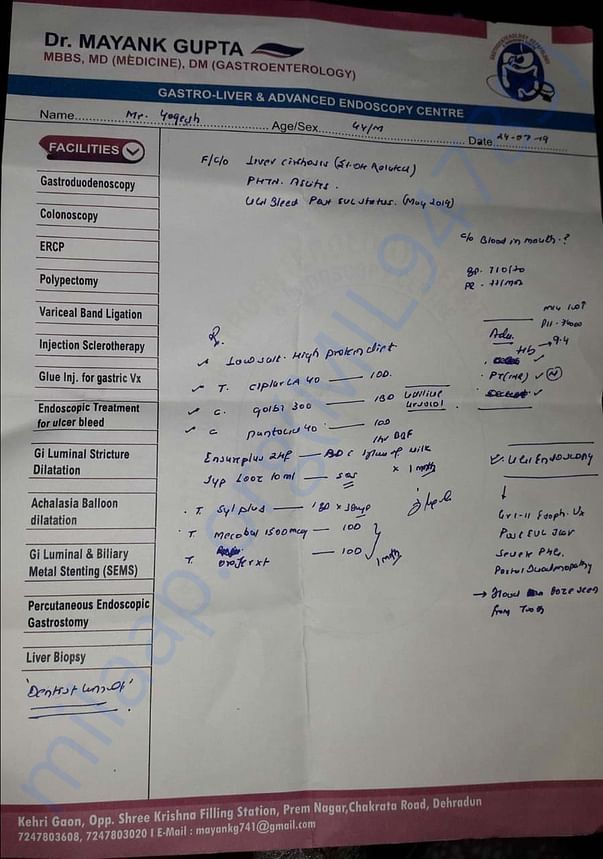 Dr. MAYANK GUPTA
MBBS, MD (MEDICINE), DM (GASTROENTEROLOGY)
GASTRO-LIVER & ADVANCED ENDOSCOPY CENTRE
Name Mr. Yogesh Age/Sex 44/M Date 24-07-19
FACILITIES
Gastroduodenoscopy
Colonoscopy
ERCP
Polypectomy
Variceal Band Ligation
Injection Sclerotherapy
Glue Inj. for gastric Vx
Endoscopic Treatment
for ulcer bleed
Gi Luminal Stricture
Dilatation
Achalasia Balloon
dilatation
Gi Luminal & Biliary
Metal Stenting (SEMS)
Percutaneous Endoscopic
Gastrostomy
Liver Biopsy
'Dentist
F/C/O Liver Cirrhosis (Et-OH Related)
PHTN. Ascites.
UGI Bleed Post EVL status. (May 2019)
c/o Blood in mouth ?
BP. 110/70
Adv.
Hb → 9.4
PT(INR)
Rx.
Low salt. High protein diet
T. Ciplar LA 40 — 1OD.
C. Golbi 300 — 1BD
C Pantocid 40 — 1OD
1hr BBF
Ensureplus 2tsf — BD c 1glass of milk
Syp Looz 10ml — SOS x 1mth
T. Sylplus — 1BD x 3days
T. Mecobal 1500mcg — 1OD
T. Orofer xt — 1OD 1mth
UGI Endoscopy
↓
Gr I-II Esoph. Vx
Post EVL scar
Severe PHG.
Portal Duodenopathy
→ Blood ooze seen
from Tooth
Kehri Gaon, Opp. Shree Krishna Filling Station, Prem Nagar,Chakrata Road, Dehradun
7247803608, 7247803020 I E-Mail : mayankg741@gmail.com